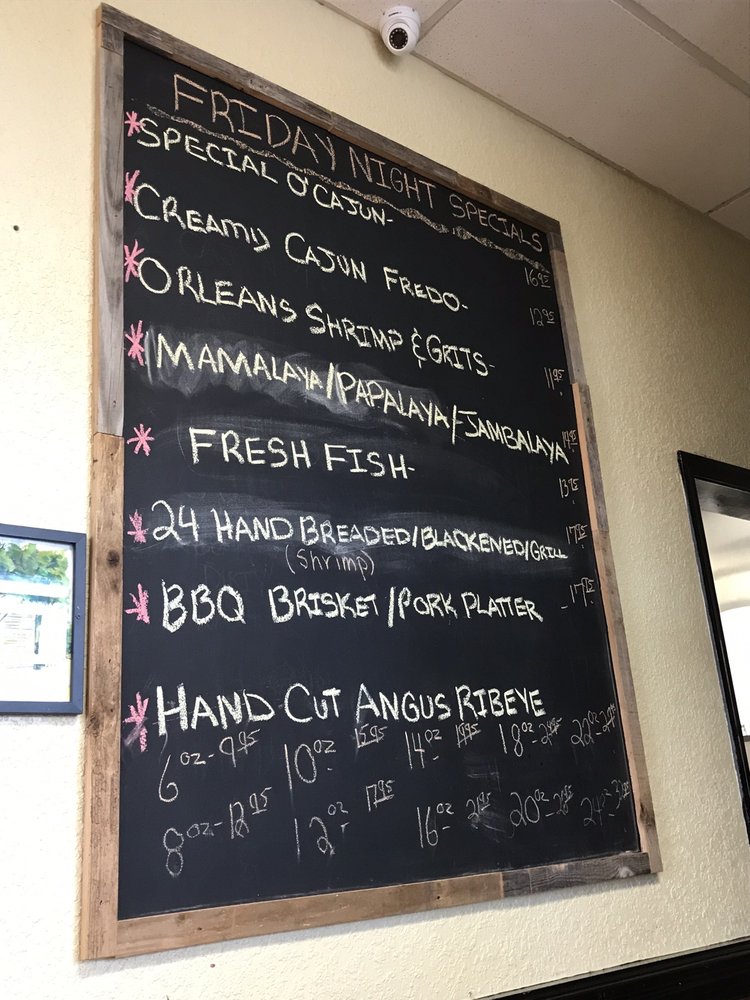 FRIDAY NIGHT SPECIALS
*SPECIAL O'CAJUN- 16.95
*CREAMY CAJUN FREDO- 12.95
*ORLEANS SHRIMP & GRITS- 11.95
*MAMALAYA/PAPALAYA/-JAMBALAYA 14.95
*FRESH FISH- 13.95
*24 HAND BREADED/BLACKENED/GRILL 17.95
(Shrimp)
*BBQ BRISKET/PORK PLATTER - 17.95
*HAND CUT ANGUS RIBEYE
6oz-9.95 10oz 15.95 14oz- 19.95 18oz- 22oz-
8oz-12.95 12oz- 17.95 16oz- 20oz- 24oz-